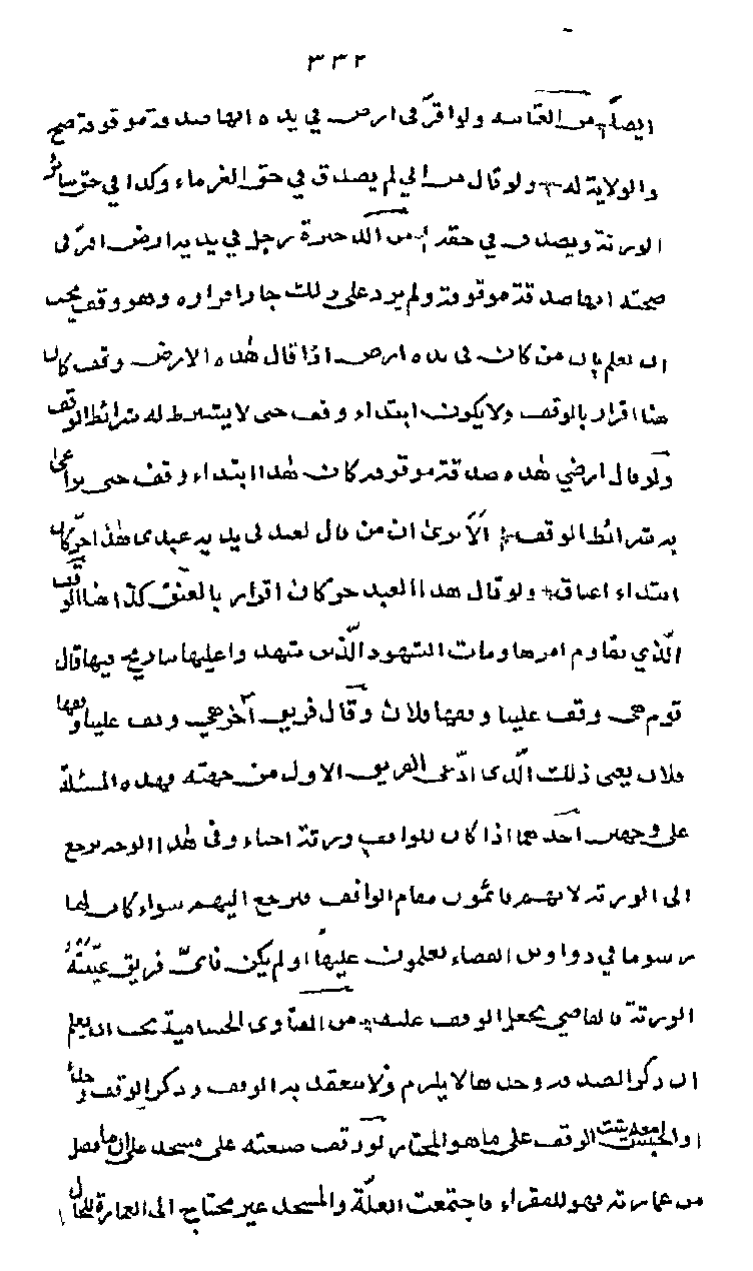 ٣٣٢
الصلح من القنية ولو اقرّ فى ارض في يده انها صدقة موقوفة صح
والولاية له ولو قال من ابي لم يصدق في حق الغرماء وكذا في حق سائر
الورثة ويصدق في حقه من الذخيرة رجل في يديه ارض اقرّ فى
صحته انها صدقة موقوفة ولم يزد على ذلك جاز اقراره وهو وقف يجب
ان يعلم بان من كان فى يده ارض اذا قال هٰذه الارض وقف كان
هذا اقرار بالوقف ولا يكون ابتداء وقف حتى لا يشترط له شرائط الوقف
ولو قال ارضي هٰذه صدقة موقوفة كان هٰذا ابتداء وقف حتى يراعى
به شرائط الوقف الا يرى ان من قال لعبد في يديه عبدى هٰذا حرّ كان
ابتداء اعتاق ولو قال هذا العبد حر كان اقرار بالعتق كذا هذا الوقف
الّذي تقادم امرها ومات الشهود الّذين شهدوا عليها فيها قال
قوم هى وقف علينا وقفها فلان وقال فريق آخر هي وقف علينا وقفها
فلان يعنى ذلك الّذى ادّعى الفريق الاول من جهته فهذه المسئلة
على وجهين احدهما اذا كان للواقف ورثة احياء وفى هٰذا الوجه يرجع
الى الورثة لانهم قائمون مقام الواقف فيرجع اليهم سواء كان لها
رسوما في دواوين القضاء يعلمون عليها او لم يكن فايّ فريق عيّنته
الورثة فالقاضي يجعل الوقف عليه من الفتاوى الحسامية يجب ان يعلم
ان ذكر الصدقة وحدها لا يلزم ولا ينعقد به الوقف وذكر الوقف وحده
او الحبس معه يثبت الوقف على ما هو المختار لو وقف ضيعته على مسجد على ان ما فضل
من عمارته فهو للفقراء فاجتمعت الغلّة والمسجد غير محتاج الى العمارة للحال